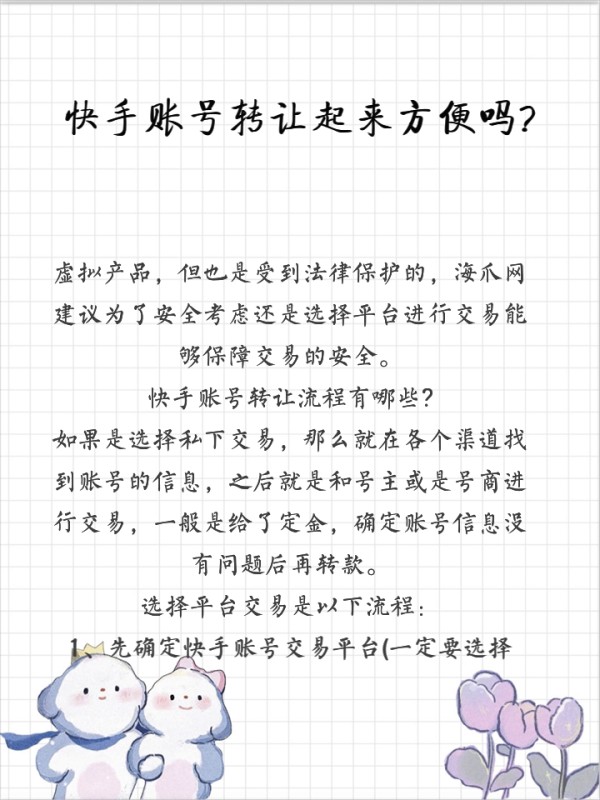 快手账号转让起来方便吗?
虚拟产品，但也是受到法律保护的，海爪网
建议为了安全考虑还是选择平台进行交易能
够保障交易的安全。
快手账号转让流程有哪些?
如果是选择私下交易，那么就在各个渠道找
到账号的信息，之后就是和号主或是号商进
行交易，一般是给了定金，确定账号信息没
有问题后再转款。
选择平台交易是以下流程：
1、先确定快手账号交易平台(一定要选择